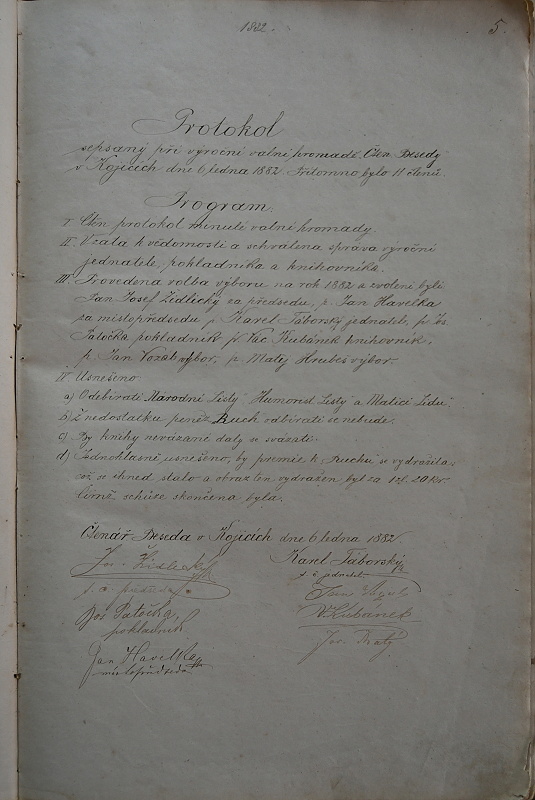 1882.
5.
Protokol
sepsaný při výroční valní hromadě Čten. Besedy
v Kojicích dne 6 ledna 1882. Přítomno bylo 11 členů.
Program.
I. Čten protokol minulé valní hromady.
II. Vzata k vědomosti a schválena správa výroční
jednatele, pokladníka a knihovníka.
III. Provedena volba výboru na rok 1882 a zvoleni byli
Pan Josef Židlický za předsedu, p. Jan Havelka
za místopředsedu p. Karel Táborský jednatele, p. Jos.
Patočka pokladník p. Vác. Kubánek knihovník.
p. Jan Vozab výbor, p. Matěj Hrubeš výbor.
IV Usnešeno.
a) Odebírati Národní Listy" Humorist. Listy" a Matici Lidu".
b) Z nedostatku peněz Ruch odbírati se nebude.
c) By knihy nevázané daly se svázati.
d) Jednohlasně usnešeno, by premie k "Ruchu" se vydražila,
což se ihned stalo a obraz ten vydražen byl za 1 zl. 20 kr
Čímž schůze skončena byla.
Čtenář. Beseda v Kojicích dne 6 ledna 1882.
Jos. Židlický
Karel Táborský
t. č. předseda
t. č. jednatel
Jan
Jos. Patočka,
pokladník
V. Kubánek
Jos.
Jan Havelka
místopředseda